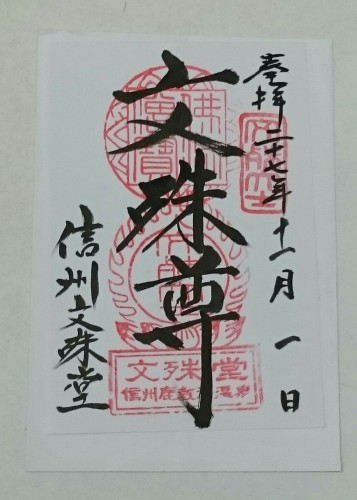 奉拝
二十七年十一月一日
文殊尊
信州文殊堂
佛法僧寶
文殊堂
信州鹿教湯温泉